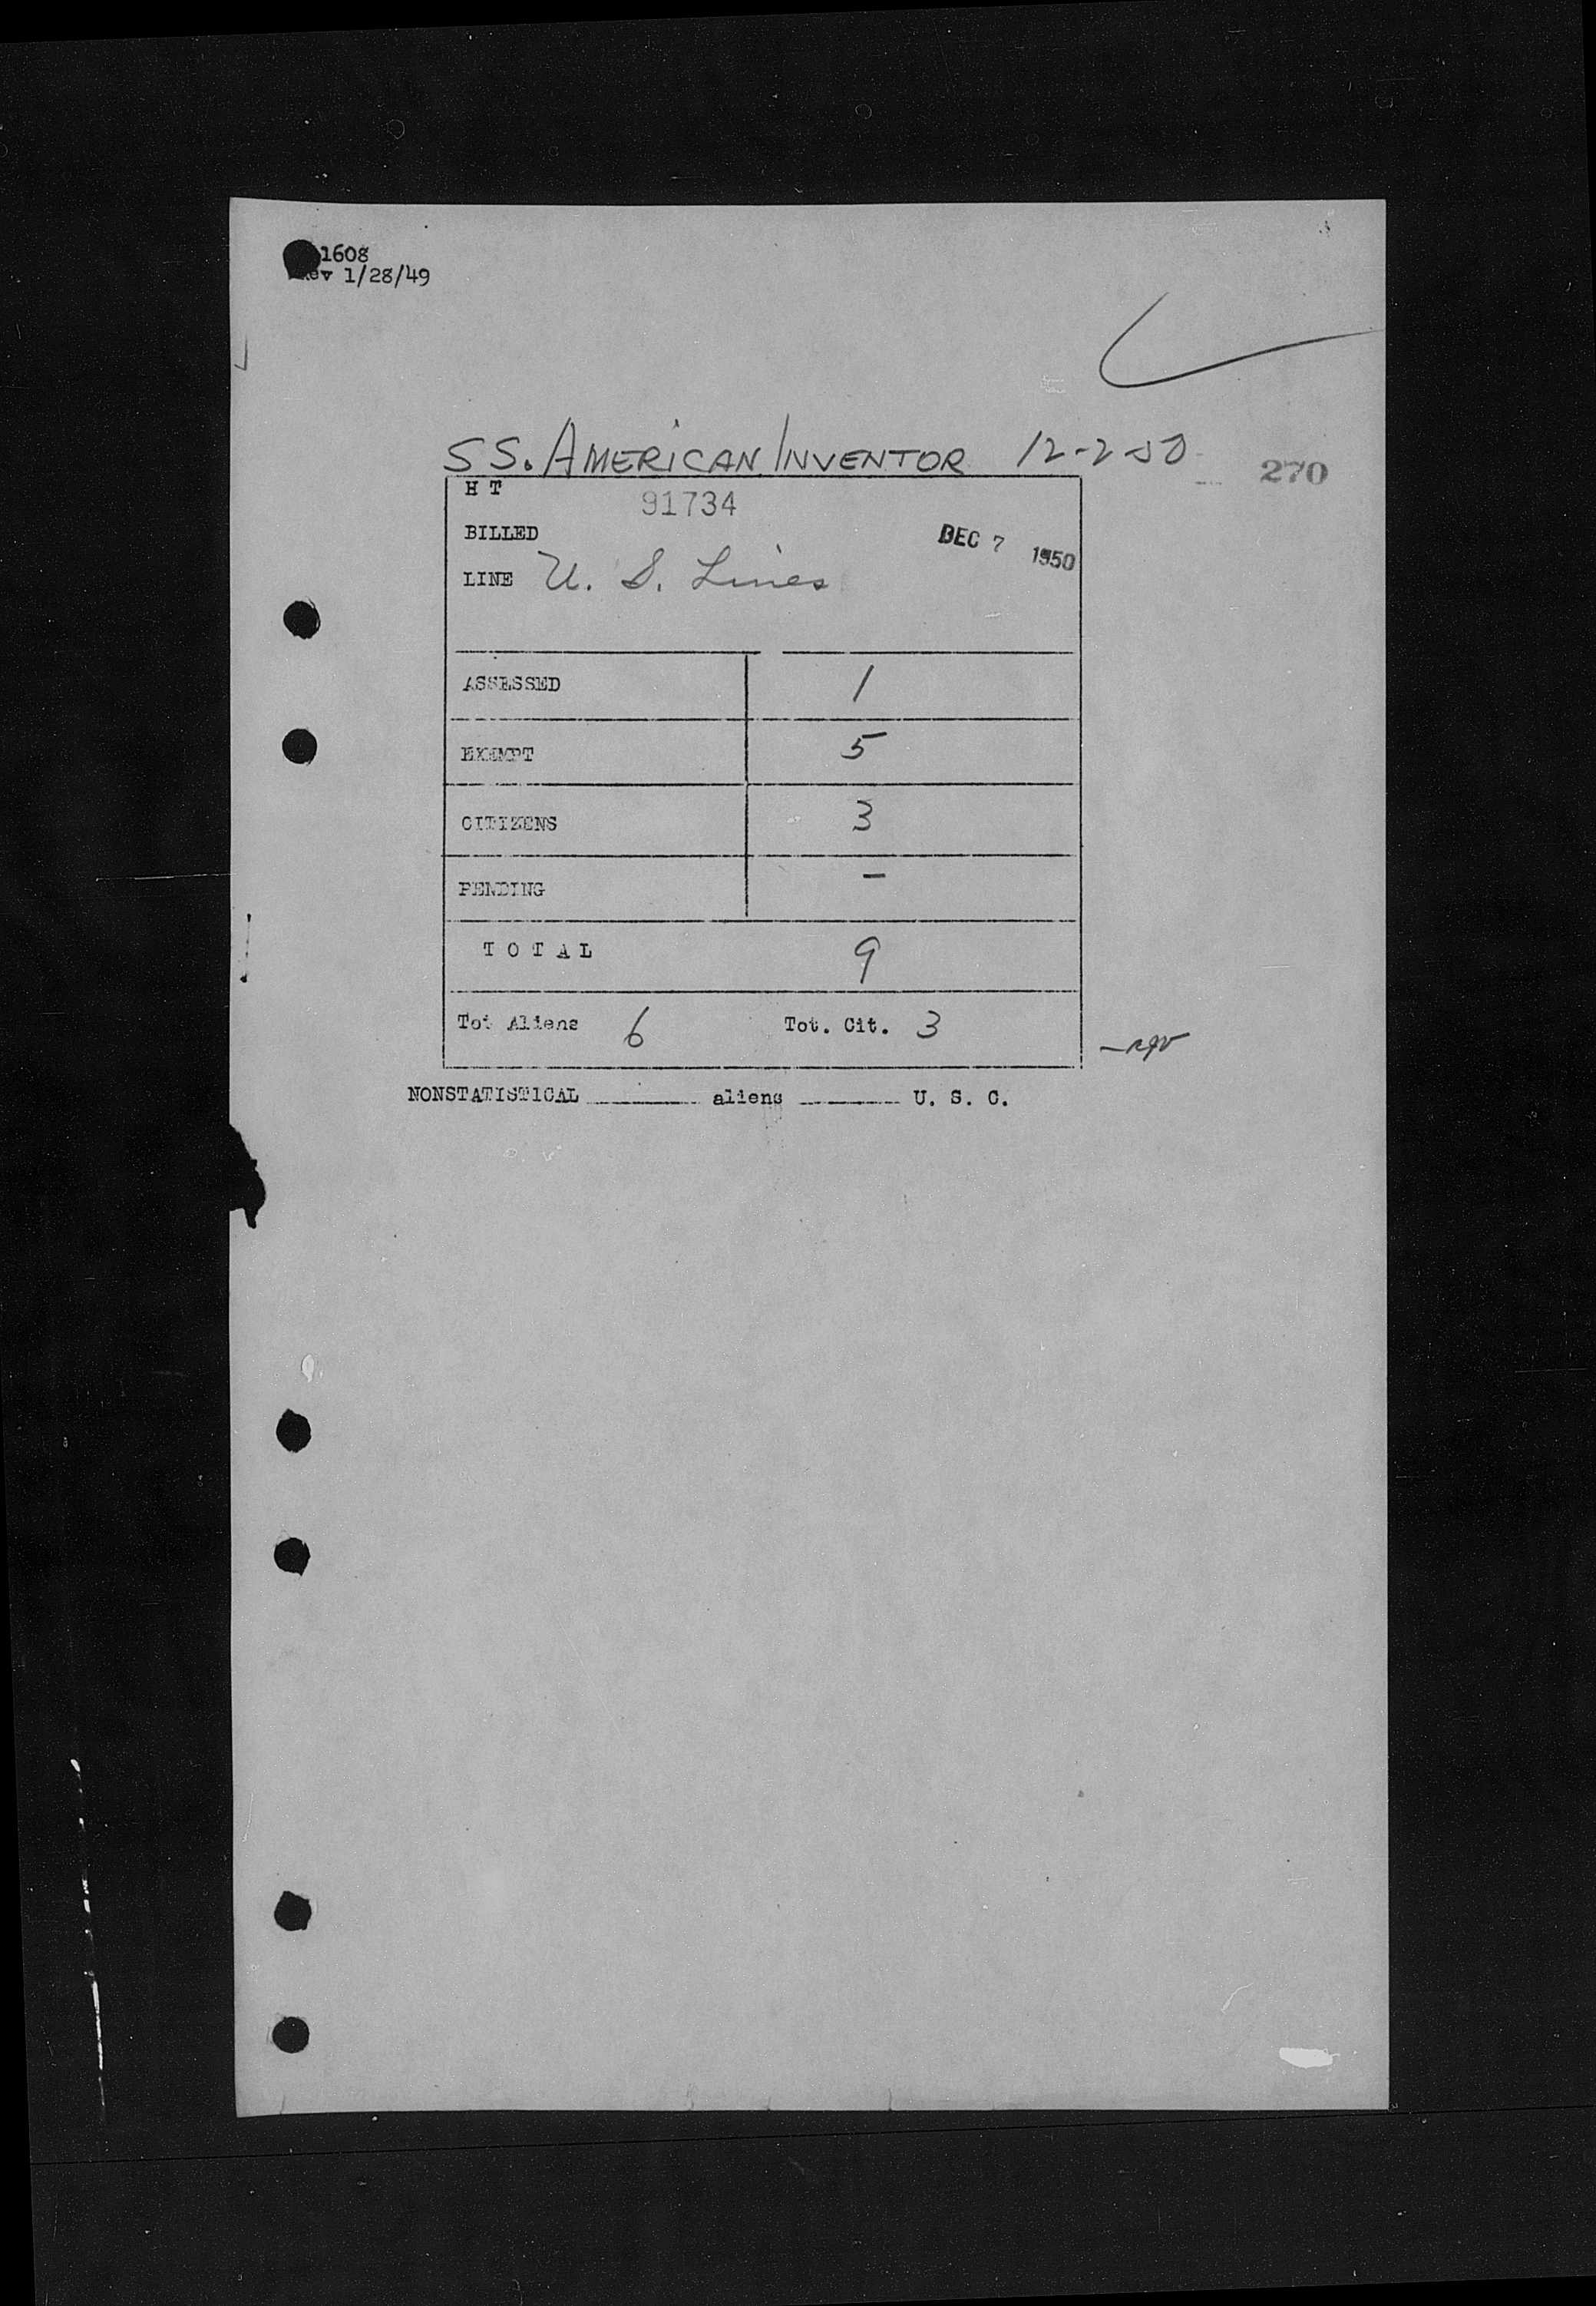 1608
Rev 1/28/49
SS. AMERICAN INVENTOR 12-2-50
270
H T
91734
BILLED
DEC 7 1950
LINE U. S. Lines
ASSESSED 1
EXEMPT 5
CITIZENS 3
PENDING –
TOTAL 9
Tot Aliens 6 Tot. Cit. 3
NONSTATISTICAL ______ aliens ______ U. S. C.